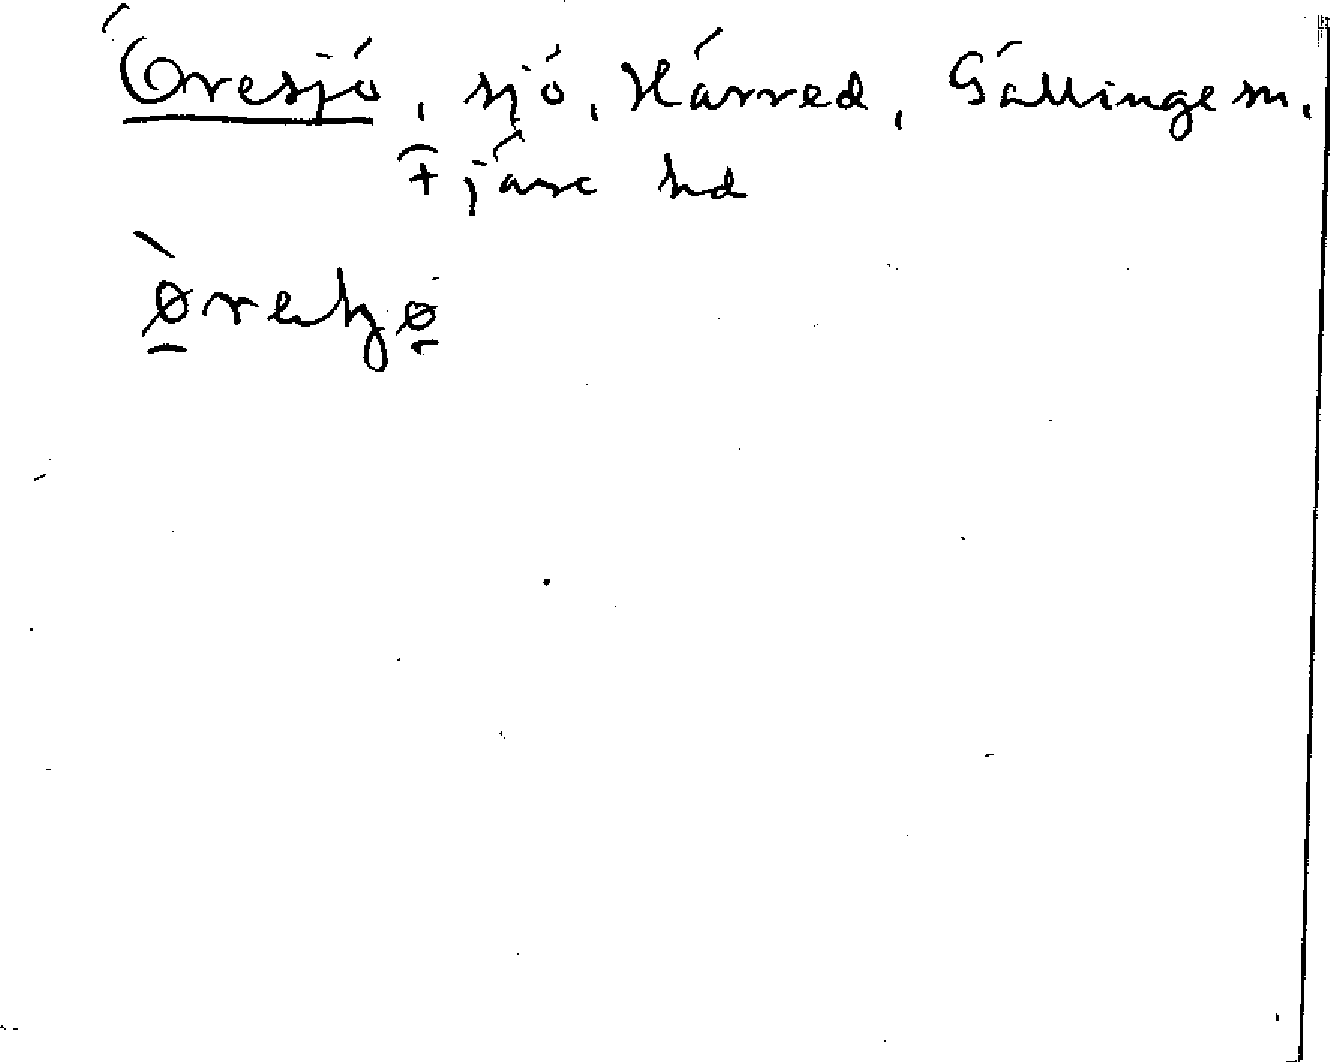 Öresjö, sjö, Härred, Gällinge sn.
Fjäre hd
ø̱̀retzø̱